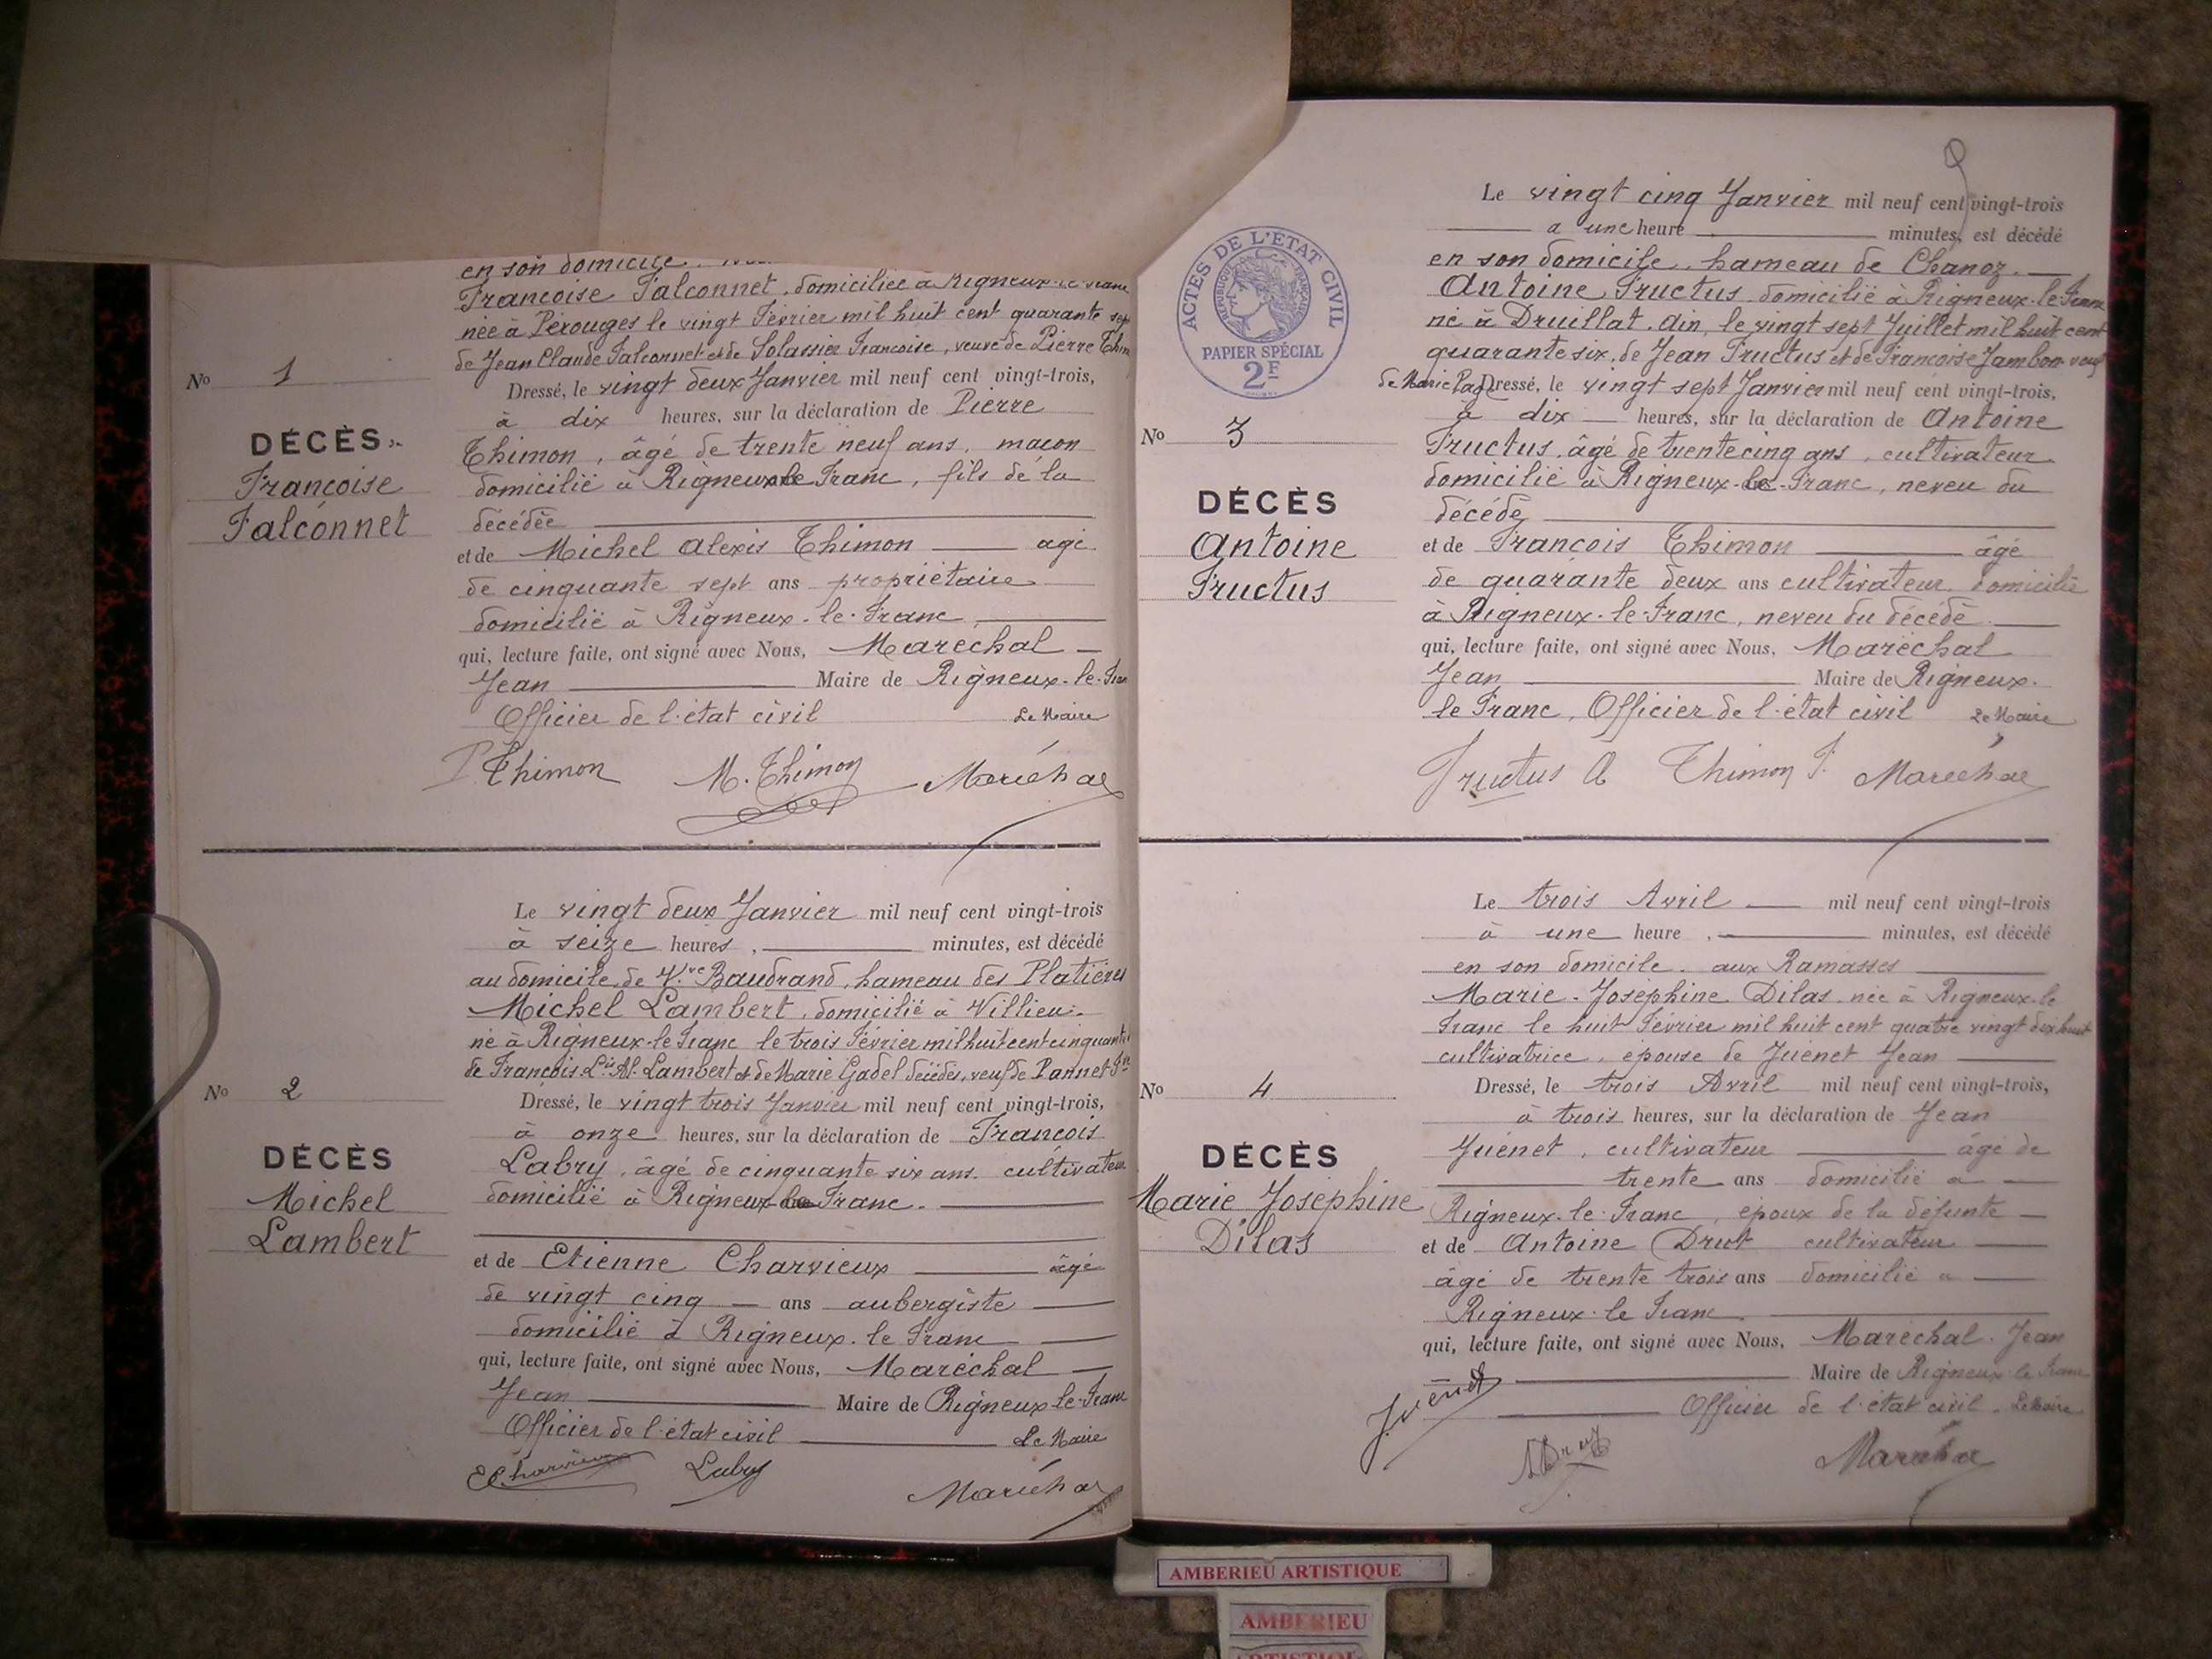 en son domicile.
Françoise Falconnet, domiciliée à Rigneux-le-Franc
née à Pérouges le vingt Février mil huit cent quarante sept
de Jean Claude Falconnet et de Solassier Françoise, veuve de Pierre Thim
No 1
Dressé, le vingt deux Janvier mil neuf cent vingt-trois,
à dix heures, sur la déclaration de Pierre
DÉCÈS
Françoise
Falconnet
Thimon, âgé de trente neuf ans, maçon
domicilié à Rigneux le Franc, fils de la
décédée
et de Michel Alexis Thimon âgé
de cinquante sept ans propriétaire
domicilié à Rigneux-le-Franc,
qui, lecture faite, ont signé avec Nous, Maréchal
Jean Maire de Rigneux-le-Fran
Officier de l'état civil Le Maire
P. Thimon M. Thimon Maréchal
Le vingt deux Janvier mil neuf cent vingt-trois
à seize heures, minutes, est décédé
au domicile de Vve Baudrand, hameau des Platières
Michel Lambert, domicilié à Villieu.
né à Rigneux-le-Franc le trois Février mil huit cent cinquante
de François Lis Al. Lambert et de Marie Gadel décédés, veuf de Pannet Fse
No 2
Dressé, le vingt trois Janvier mil neuf cent vingt-trois,
à onze heures, sur la déclaration de François
DÉCÈS
Michel
Lambert
Labry, âgé de cinquante six ans, cultivateur
domicilié à Rigneux le Franc.
et de Etienne Charvieux âgé
de vingt cinq ans aubergiste
domicilié à Rigneux-le Franc
qui, lecture faite, ont signé avec Nous, Maréchal
Jean Maire de Rigneux le-Franc
Officier de l'état civil Le Maire
E Charvieux Labry Maréchal
ACTES DE L'ETAT CIVIL
REPUBLIQUE FRANÇAISE
PAPIER SPÉCIAL
2F
Le vingt cinq Janvier mil neuf cent vingt-trois
a une heure minutes, est décédé
en son domicile, hameau de Chanoz.
Antoine Fructus domicilié à Rigneux-le-Franc
né à Druillat, Ain, le vingt sept Juillet mil huit cent
quarante six, de Jean Fructus et de Françoise Jambon veuf
de Marie Dressé, le vingt sept Janvier mil neuf cent vingt-trois,
No 3
à dix heures, sur la déclaration de Antoine
DÉCÈS
Antoine
Fructus
Fructus, âgé de trente cinq ans, cultivateur
domicilié à Rigneux-le-Franc, neveu du
décédé
et de François Thimon âgé
de quarante deux ans cultivateur domicilié
à Rigneux-le-Franc, neveu du décédé
qui, lecture faite, ont signé avec Nous, Maréchal
Jean Maire de Rigneux-
le Franc, Officier de l'état civil Le Maire
Fructus A Thimon F. Maréchal
Le trois Avril mil neuf cent vingt-trois
à une heure, minutes, est décédé
en son domicile, aux Ramasses
Marie-Joséphine Dilas née à Rigneux-le
Franc le huit Février mil huit cent quatre vingt dix huit
cultivatrice, épouse de Juénet Jean
No 4
Dressé, le trois Avril mil neuf cent vingt-trois,
à trois heures, sur la déclaration de Jean
DÉCÈS
Marie Joséphine
Dilas
Juénet, cultivateur âgé de
trente ans domicilié à
Rigneux-le-Franc, époux de la défunte
et de Antoine Drut cultivateur
âgé de trente trois ans domicilié à
Rigneux-le Franc
qui, lecture faite, ont signé avec Nous, Maréchal Jean
Maire de Rigneux-le Franc
Officier de l'état civil. Le Maire
Juénet A Drut Maréchal
AMBERIEU ARTISTIQUE
AMBERIEU
ARTISTIQUE